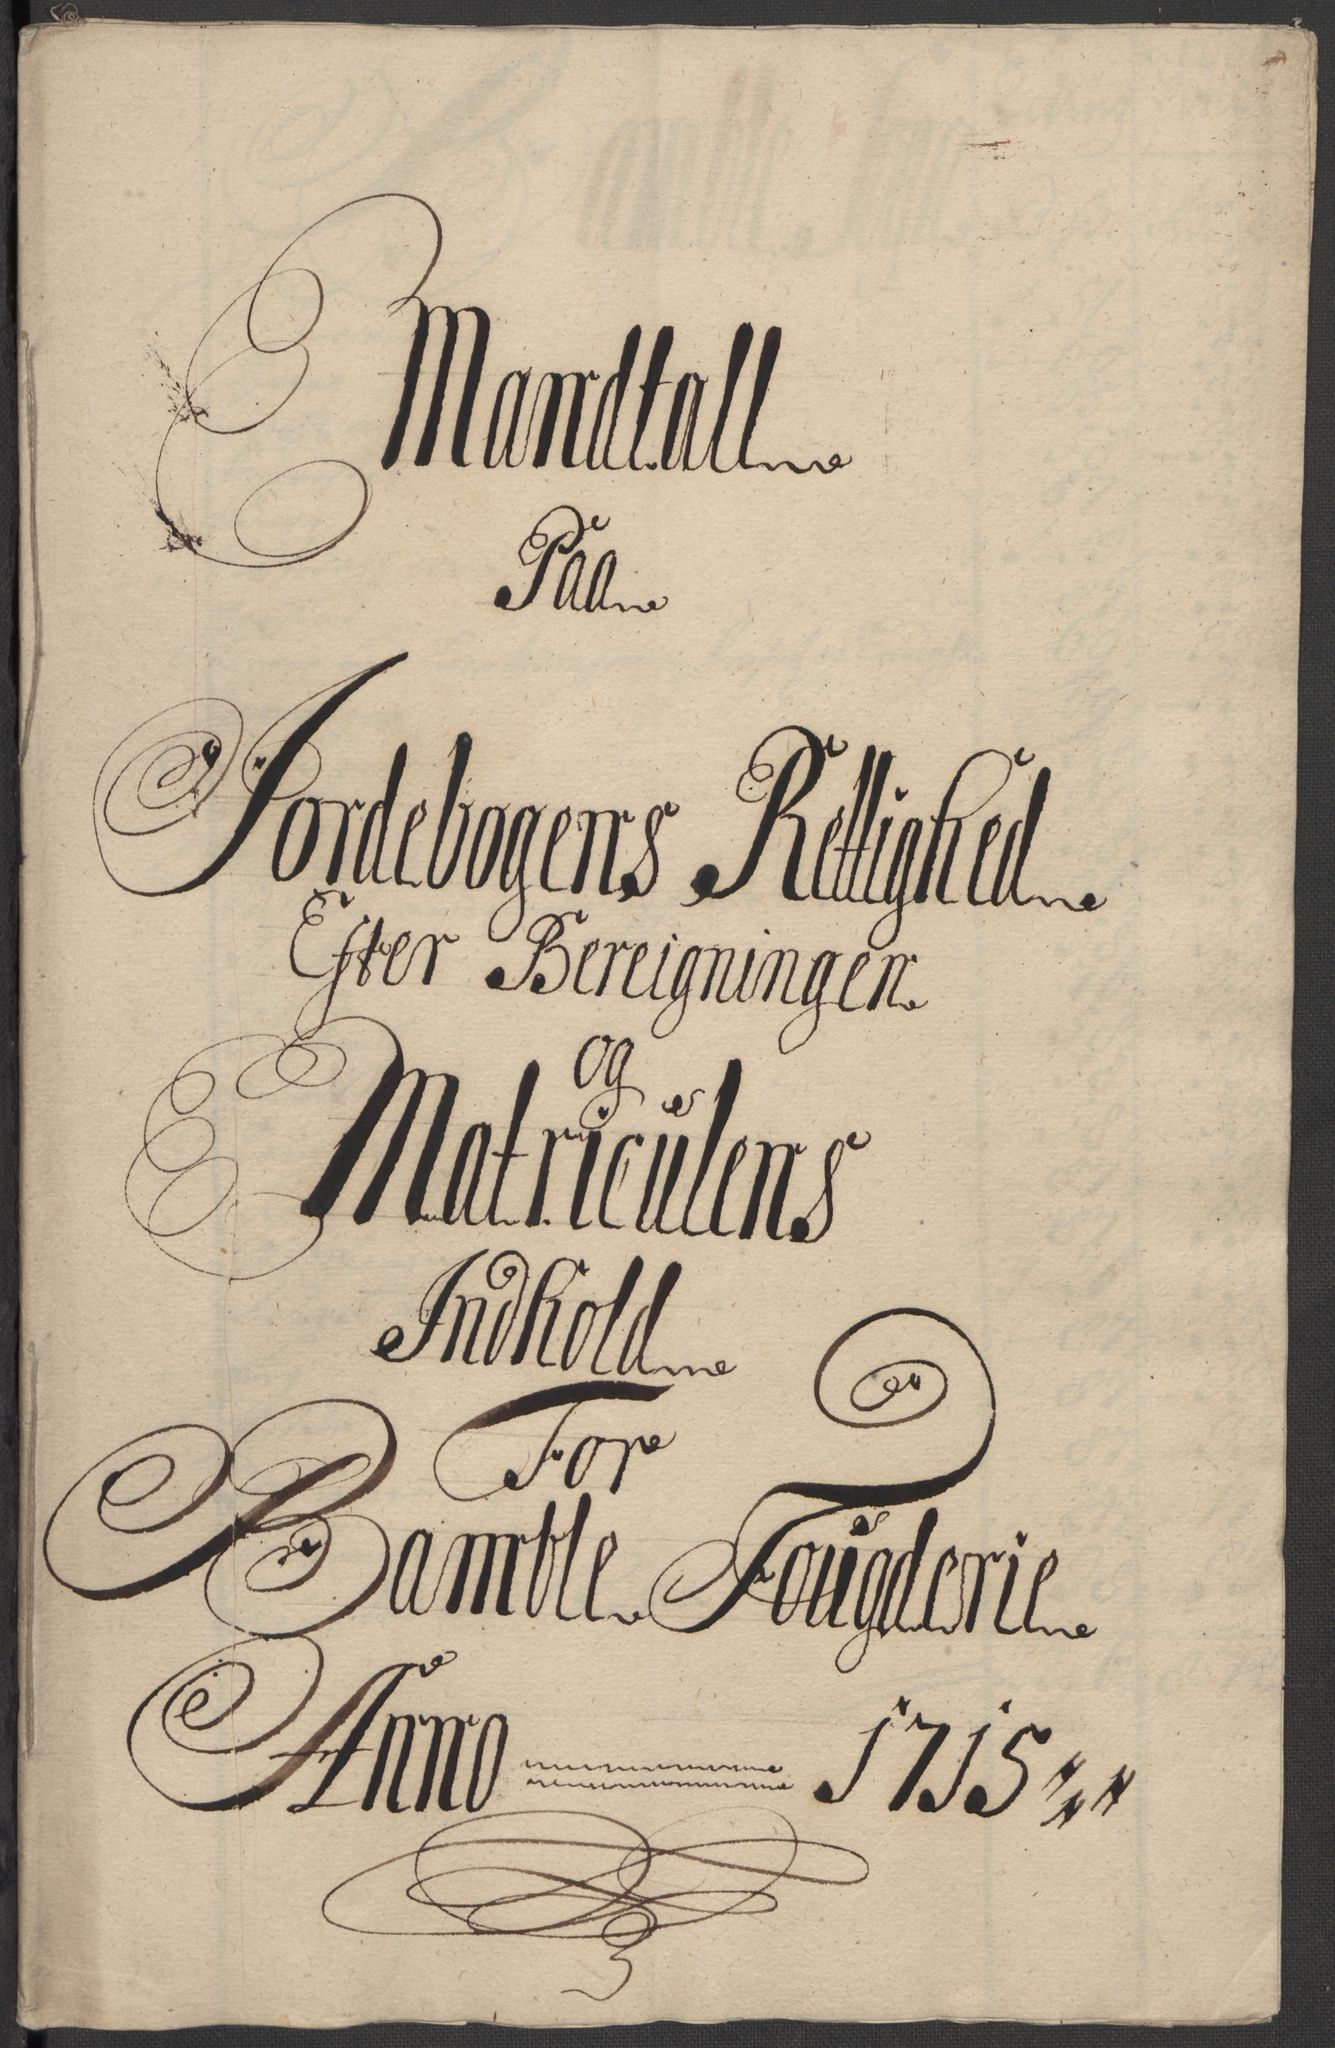 Mandtall
Paa
Jordebogens Rettighed
Efter Bereigningen
og
Matriculens
Indhold
For
Bamble Fougderie
Anno 1715